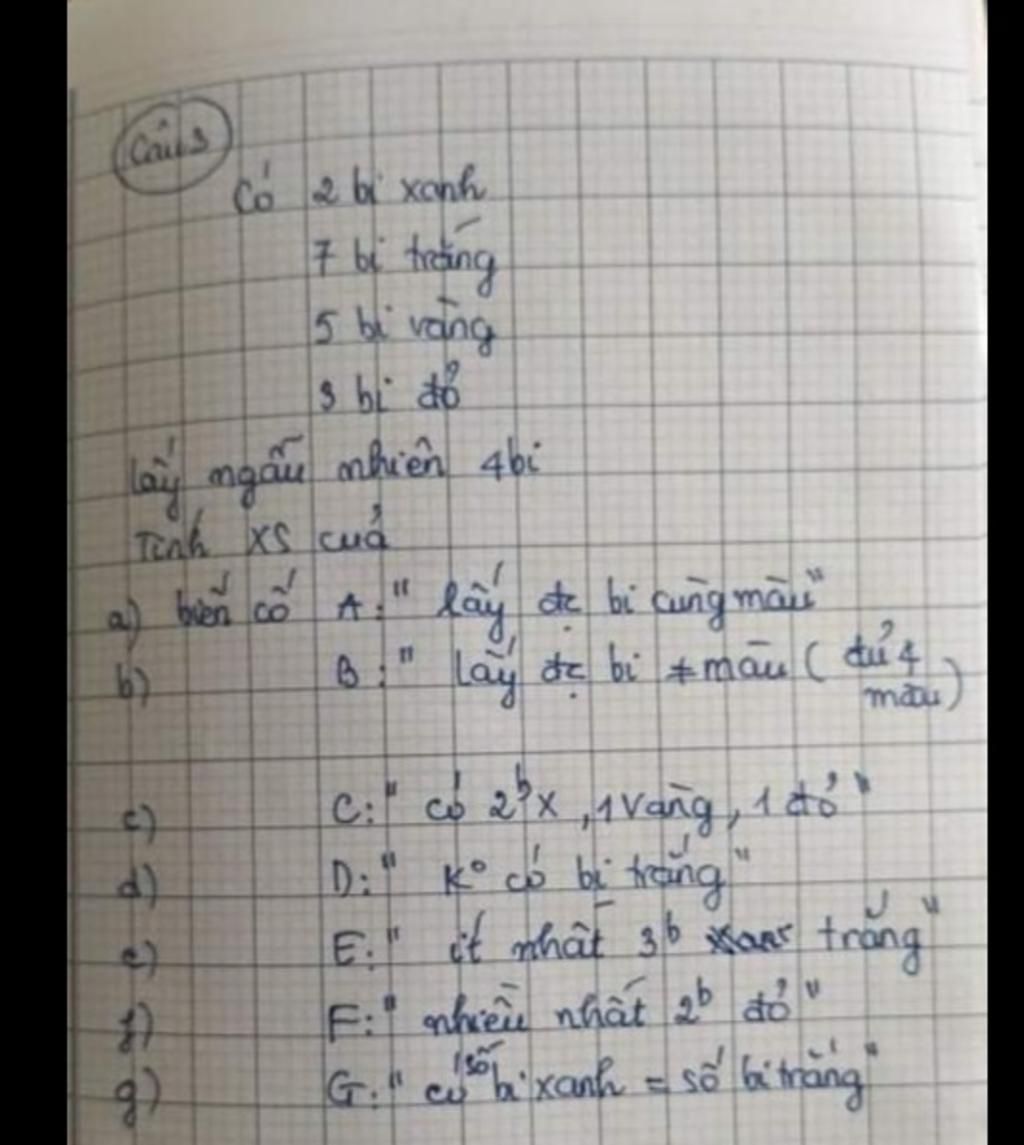 Câu 3
Có 2 bi xanh
7 bi trắng
5 bi vàng
3 bi đỏ
lấy ngẫu nhiên 4 bi
Tính XS cuả
a) biến cố A: " lấy đc bi cùng màu"
b) B: " lấy đc bi ≠ màu ( đủ 4 màu)
c) C: " có 2b X, 1 vàng, 1 đỏ "
d) D: " K° có bi trắng "
e) E: " ít nhất 3b trắng "
f) F: " nhiều nhất 2b đỏ "
g) G: " có số bi xanh = số bi trắng "